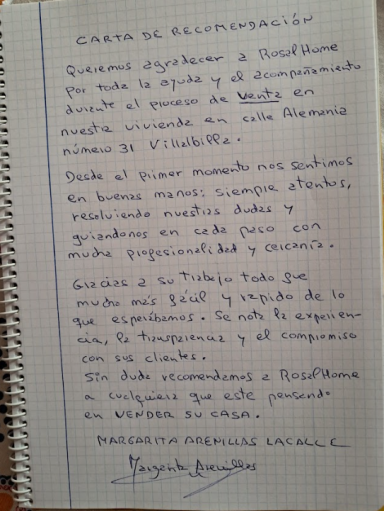 CARTA DE RECOMENDACIÓN
Queremos agradecer a RosalHome
por toda la ayuda y el acompañamiento
durante el proceso de venta en
nuestra vivienda en calle Alemania
número 31 Villalbilla.
Desde el primer momento nos sentimos
en buenas manos: siempre atentos,
resolviendo nuestras dudas y
guiandonos en cada paso con
mucha profesionalidad y cercanía.
Gracias a su trabajo todo fue
mucho más fácil y rápido de lo
que esperábamos. Se nota la experien-
cia, la transparencia y el compromiso
con sus clientes.
Sin duda recomendamos a RosalHome
a cualquiera que este pensando
en VENDER SU CASA.
MARGARITA ARENILLAS LACALLE
Margarita Arenillas